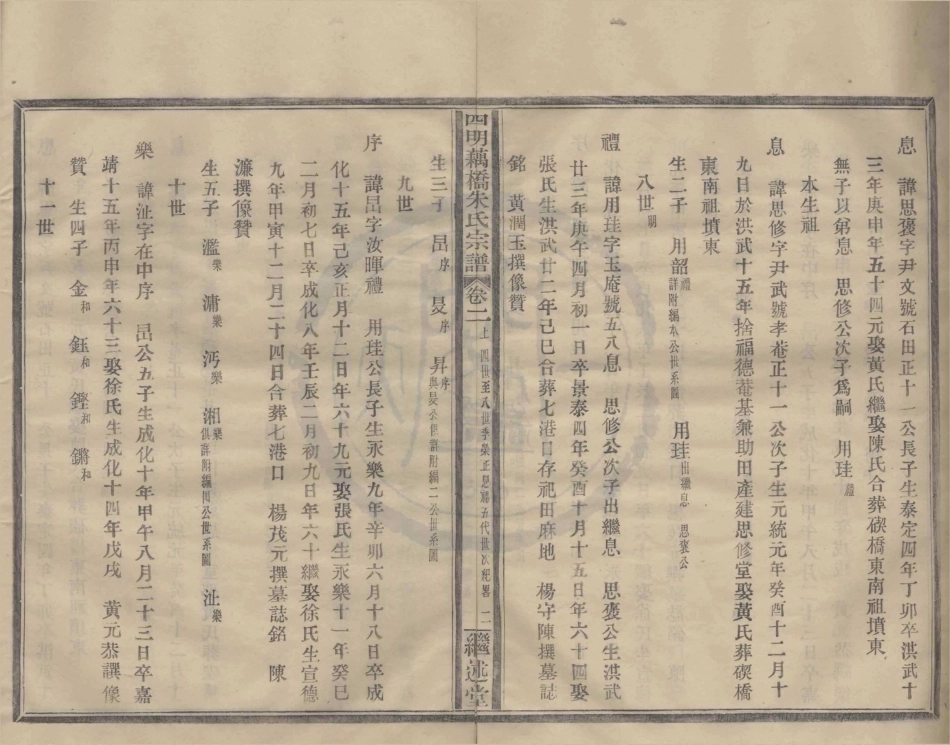 息　諱思褒字尹文號石田正十一公長子生泰定四年丁卯卒洪武十
三年庚申年五十四元娶黃氏繼娶陳氏合葬碶橋東南祖墳東
無子以弟息　思修公次子爲嗣　用珪禮
本生祖
息　諱思修字尹武號孝菴正十一公次子生元統元年癸酉十二月十
九日於洪武十五年捨福德菴基兼助田產建思修堂娶黃氏葬碶橋
東南祖墳東
生二子　用韶禮詳附編本公世系圖　用珪出繼息　思褒公
八世
禮　諱用珪字玉庵號五八息　思修公次子出繼息　思褒公生洪武
廿三年庚午四月初一日卒景泰四年癸酉十月十五日年六十四娶
張氏生洪武廿二年己巳合葬七港口存祀田麻地　楊守陳撰墓誌
銘　黃潤玉撰像贊
四明藕橋朱氏宗譜　卷二上　四世至八世季榮正息禮五代世次紀畧　二　繼述堂
生三子　昂序　旻序　昇序與旻公俱詳附編二公世系圖
九世
序　諱昂字汝暉禮　用珪公長子生永樂九年辛卯六月十八日卒成
化十五年己亥正月十二日年六十九元娶張氏生永樂十一年癸巳
二月初七日卒成化八年壬辰二月初九日年六十繼娶徐氏生宣德
九年甲寅十二月二十四日合葬七港口　楊茂元撰墓誌銘　陳
濂撰像贊
生五子　濫樂　浦樂　沔樂　湘樂俱詳附編四公世系圖　沚樂
十世
樂　諱沚字在中序　昂公五子生成化十年甲午八月二十三日卒嘉
靖十五年丙申年六十三娶徐氏生成化十四年戊戌　黃元恭譔像
贊　生四子　金和　鈺和　鏗和　鏘和
十一世